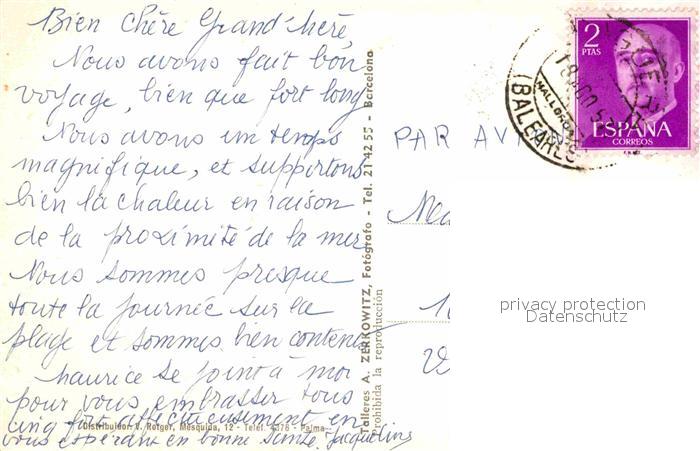 Bien chère Grand'Mère
Nous avons fait bon
voyage, bien que fort long
Nous avons un temps
magnifique, et supportons
bien la chaleur en raison
de la proximité de la mer
Nous sommes presque
toute la journée sur la
plage et sommes bien contents
Maurice se joint à moi
pour vous embrasser tous
cinq fort affectueusement en
vous espérant en bonne santé. Jacqueline
Distribuidor: V. Rotger, Mesquida, 12 - Telef. 4378 - Palma
Talleres A. ZERKOWITZ, Fotógrafo - Tel. 21 42 55 - Barcelona
Prohibida la reproducción
PAR AVION
2
PTAS
ESPAÑA
CORREOS
MALLORCA
(BALEARES)
privacy protection
Datenschutz